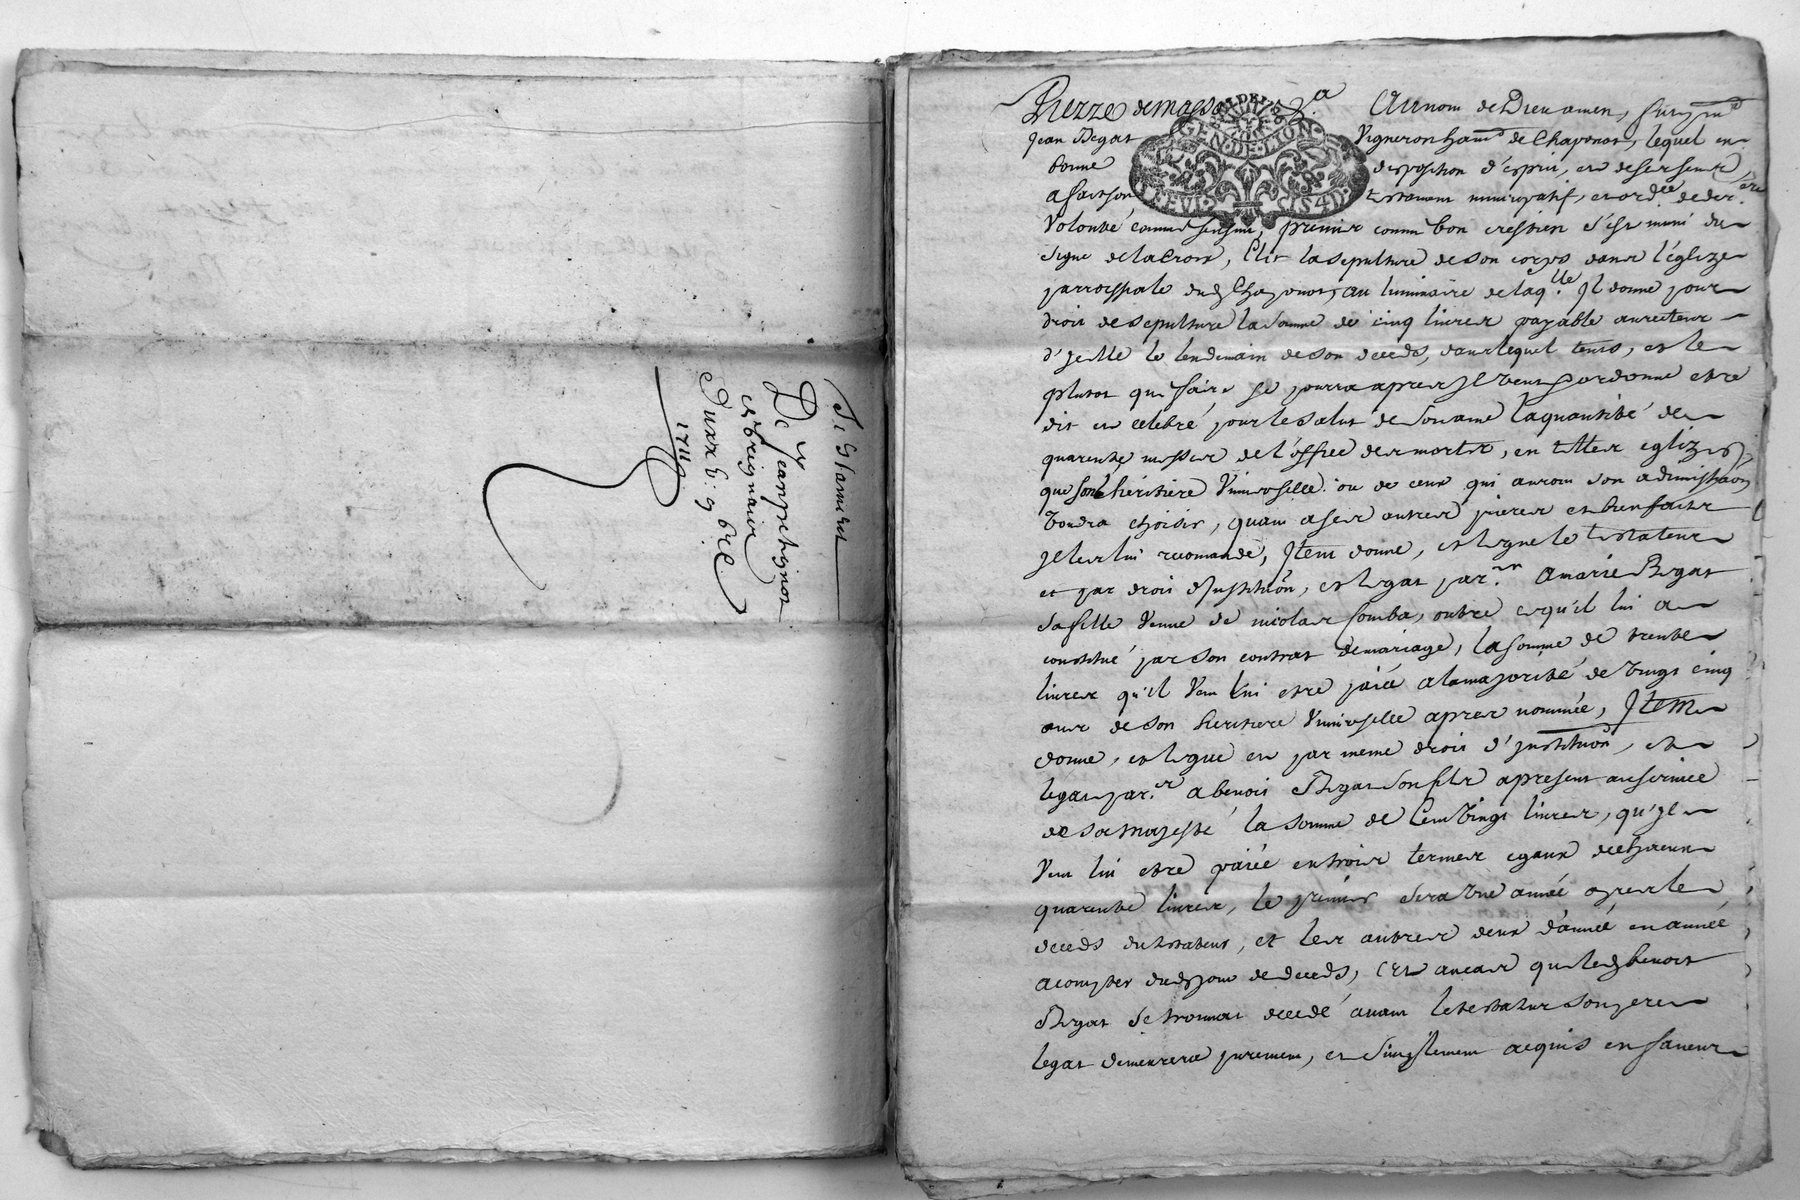 Testament
De Jean petignot
et breignaire
Du xx b: 9 bre
1711
Au nom de Dieu amen, fut p.nt
Jean Begat Vigneron ha.nt de Chaponost, lequel en
bonne disposition d'esprit, en de ses sens
a fait son testament nuncupatif, et ord.ce de der.ere
Volonté comme s'ensuit, premier comme bon crestien s'est muni du
signe de la Croix, Elit la sepulture de son corps dans l'églize
parroissiale dud Chaponost, au luminaire de laq.lle Il donne pour
droit de sepulture la somme de cinq livres payable au recteur
d'jcelle le lendemain de son deceds, dans lequel tems, et le
plutot que faire se pourra apres Il veut ordonne etre
dit et celebré pour le salut de son ame la quantité de
quarente messes de l'office des morts, en telles eglizes
que son héritiere Universelle ou de ceux qui auront son administraõn
Voudra choisir, quant a ses autres prieres et bienfaits
Il les lui recomande, Item donne, et legue le testateur
et par droit d'Institution, et legat par.er A marie Begat
sa fille Venue de nicolas Comba, outre ce qu'il lui a
constitué par son contrat de mariage, la somme de trente
livres qu'il Veut lui etre paiée a la majorité de vingt cinq
ans de son heritiere Universelle apres nommée, Item
donne, et legue et par meme droit d'Institution, et
legat par.er a benoit Begat son fils a present au service
de sa Majesté la somme de Cent vingt livres, qu'Il
Veut lui etre paiée en trois termes egaux de chacun
quarente livres, le premier sera Une année apres le
deceds du testateur, et les autres deux d'année en année
a compter dud jour de deceds, Et au cas que led benoit
Begat se trouvat decedé avant le testateur son pere
legat demeurera purement, et simplement acquis en faveur